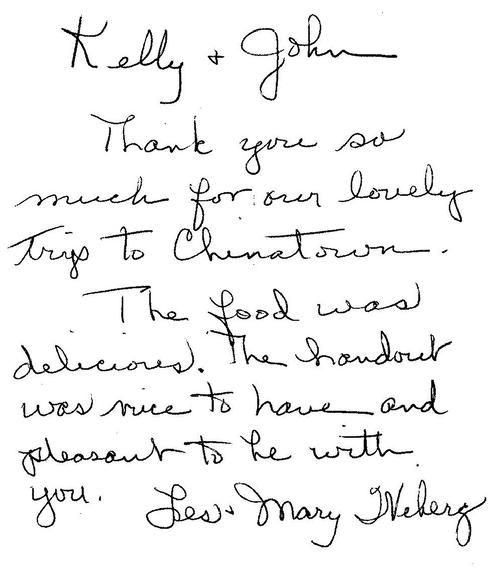 Kelly + John
Thank you so
much for our lovely
trip to Chinatown.
The food was
delicious. The handout
was nice to have and
pleasant to be with
you. Les + Mary